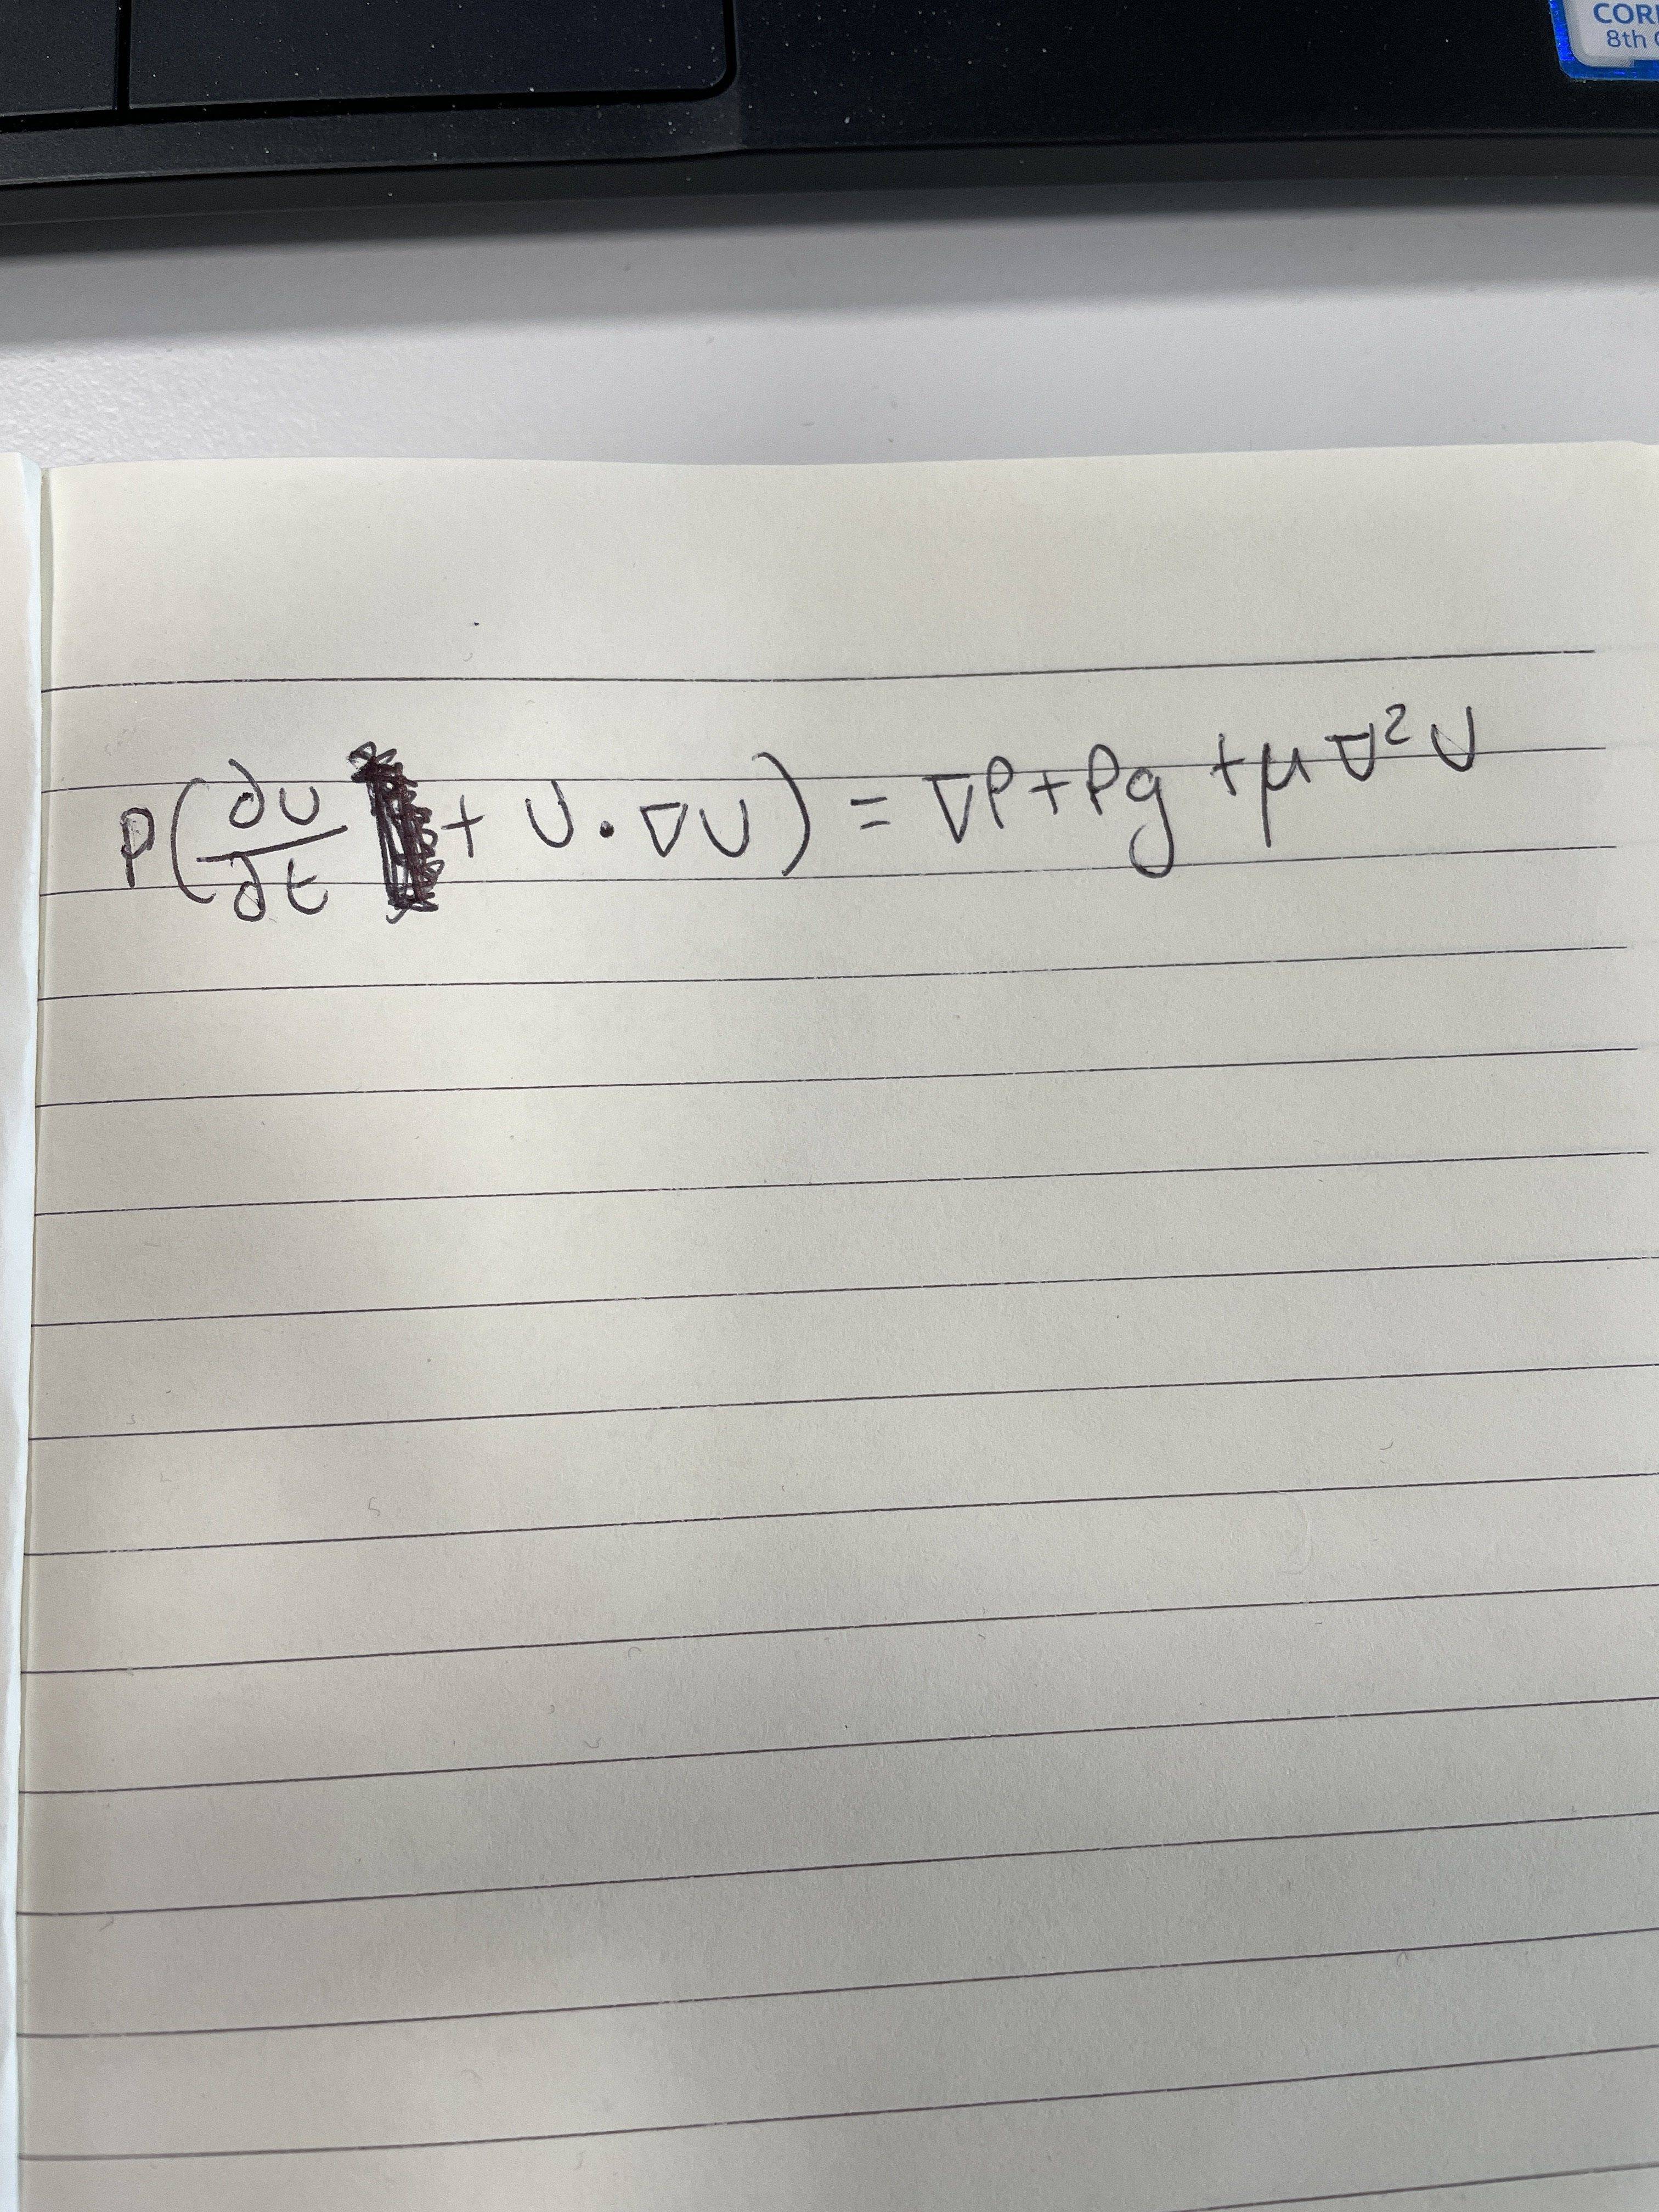 CORE
8th
P(∂U/∂t + U·∇U) = ∇P + Pg + μ∇²U